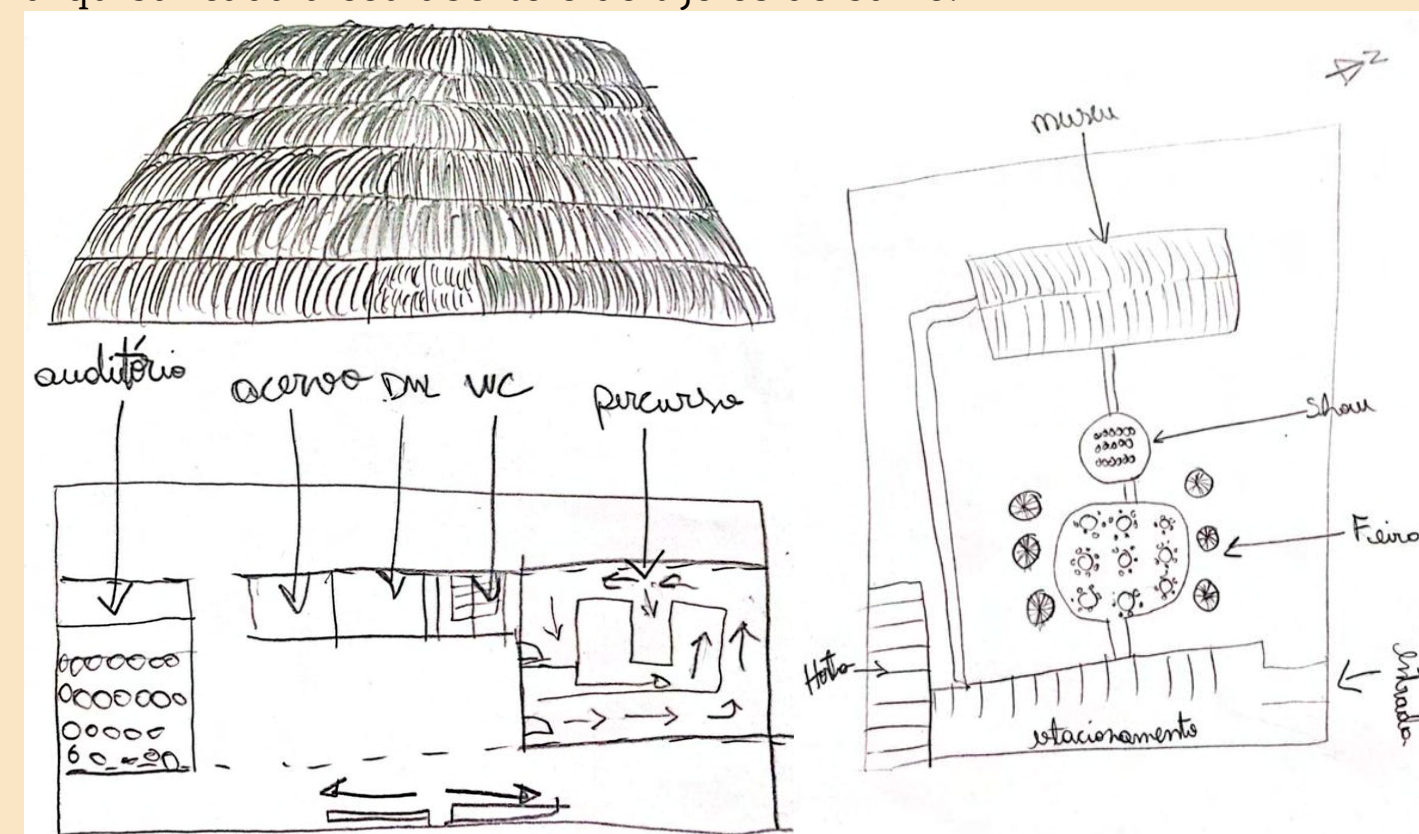 auditório
acervo
DML
WC
percurso
museu
Show
Feira
Horta
Entrada
estacionamento